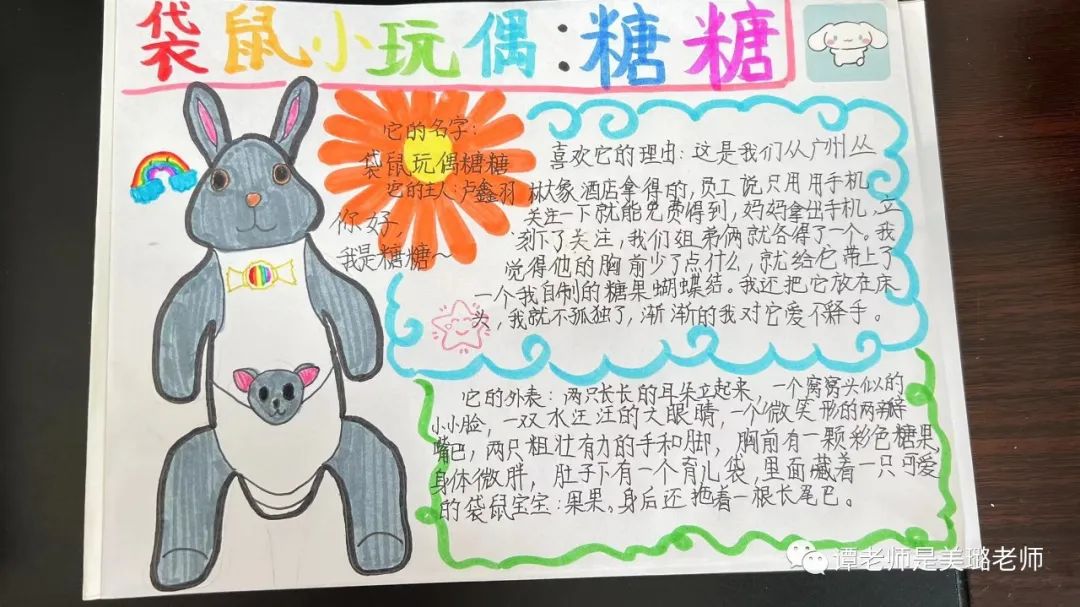 袋鼠小玩偶:糖糖
它的名字:
袋鼠玩偶糖糖
它的主人:卢鑫羽
你好,
我是糖糖~
喜欢它的理由:这是我们从广州丛
林大象酒店拿得的,员工说只用用手机
关注一下就能免费得到,妈妈拿出手机,立
刻下了关注,我们姐弟俩就各得了一个。我
觉得他的胸前少了点什么,就给它带上了
一个我自制的糖果蝴蝶结。我还把它放在床
头,我就不孤独了,渐渐的我对它爱不释手。
它的外表:两只长长的耳朵立起来,一个窝窝头似的
小小脸,一双水汪汪的大眼睛,一个微笑形的两瓣
嘴巴,两只粗壮有力的手和脚,胸前有一颗彩色糖果,
身体微胖,肚子下有一个育儿袋,里面藏着一只可爱
的袋鼠宝宝:果果。身后还拖着一根长尾巴。
谭老师是美璐老师